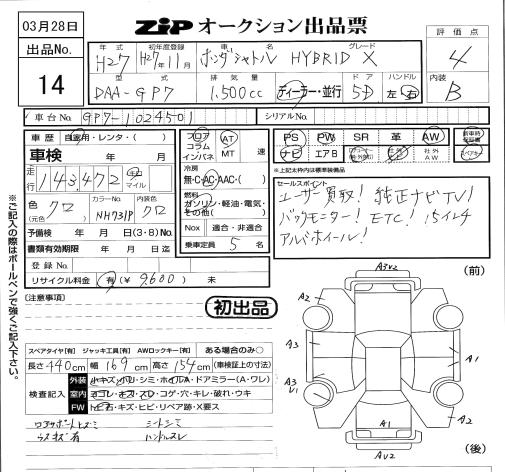 03月28日
ZIP オークション出品票
出品No.
14
年式 H27
初年度登録 H27年11月
車名 ホンダシャトル HYBRID
グレード X
評価点 4
型式 DAA-GP7
排気量 1,500cc
ディーラー・並行
ドア 5D
ハンドル 左・右
内装 B
車台No. GP7-1024501
シリアルNo.
車歴 自家用・レンタ・( )
車検 年 月
走行 143,472 km マイル
色(元色) クロ
カラーNo. NH731P
内装色 クロ
予備検 年 月 日(3・8)の
書類有効期限 年 月 日
登録No.
リサイクル料金 有(¥ 9600) 無
フロア コラム インパネ
AT MT 速
冷房 無・C・AC・AAC・( )
燃料 ガソリン・軽油・電気・その他( )
Nox 適合・非適合
乗車定員 5 名
PS PW SR 革 AW
ナビ エアB 社外AW
※上記太枠内は標準装備品
セールスポイント
ユーザー買取! 純正ナビTV!
バックモニター! ETC! 15インチ
アルミホイール!
※ご記入の際はボールペンで強くご記入下さい。
(注意事項)
初出品
スペアタイヤ[有] ジャッキ工具[有] AWロックキー[有] ある場合のみ○
長さ 440cm 幅 169cm 高さ 154cm (車検証上の寸法)
検査記入
外装 小キズ・凹・シミ・ホイルA・ドアミラー(A・ワレ)
室内 ヨゴレ・キズ・スレ・コゲ・穴・キレ・破れ・ウキ
FW トビ石・キズ・ヒビ・リペア跡・X要ス
シートシミ
ハンドルスレ
(前)
A3U2
A2
A3
A1
A3
U1
A2
A1
AU2
(後)